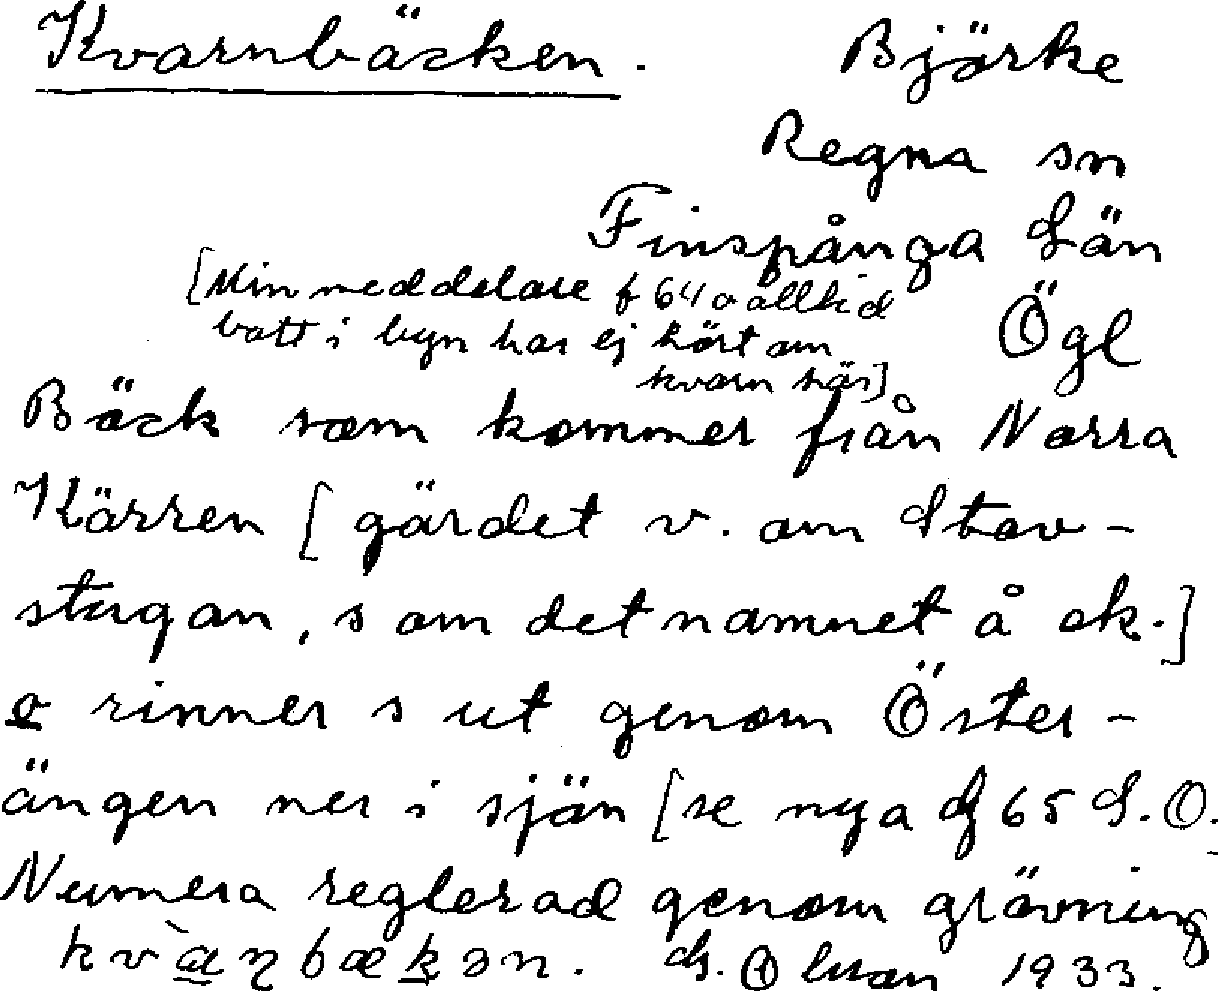 Kvarnbäcken.
Björke
Regna sn
Finspånga Län
Ögl
[Min meddelare f 64 o alltid
bott i byn har ej hört om
kvarn här]
Bäck som kommer från Norra
Kärren [gärdet v. om Stav-
stugan, som det namnet å ek.]
o rinner s ut genom Öster-
ängen ner i sjön [se nya 65 S.O.
Numera reglerad genom grävning
kvàɳbækən. 1933.